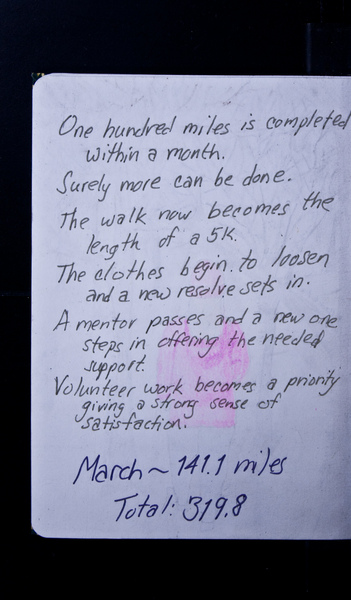 One hundred miles is completed
within a month.
Surely more can be done.
The walk now becomes the
length of a 5K.
The clothes begin to loosen
and a new resolve sets in.
A mentor passes and a new one
steps in offering the needed
support.
Volunteer work becomes a priority
giving a strong sense of
satisfaction.
March ~ 141.1 miles
Total: 319.8